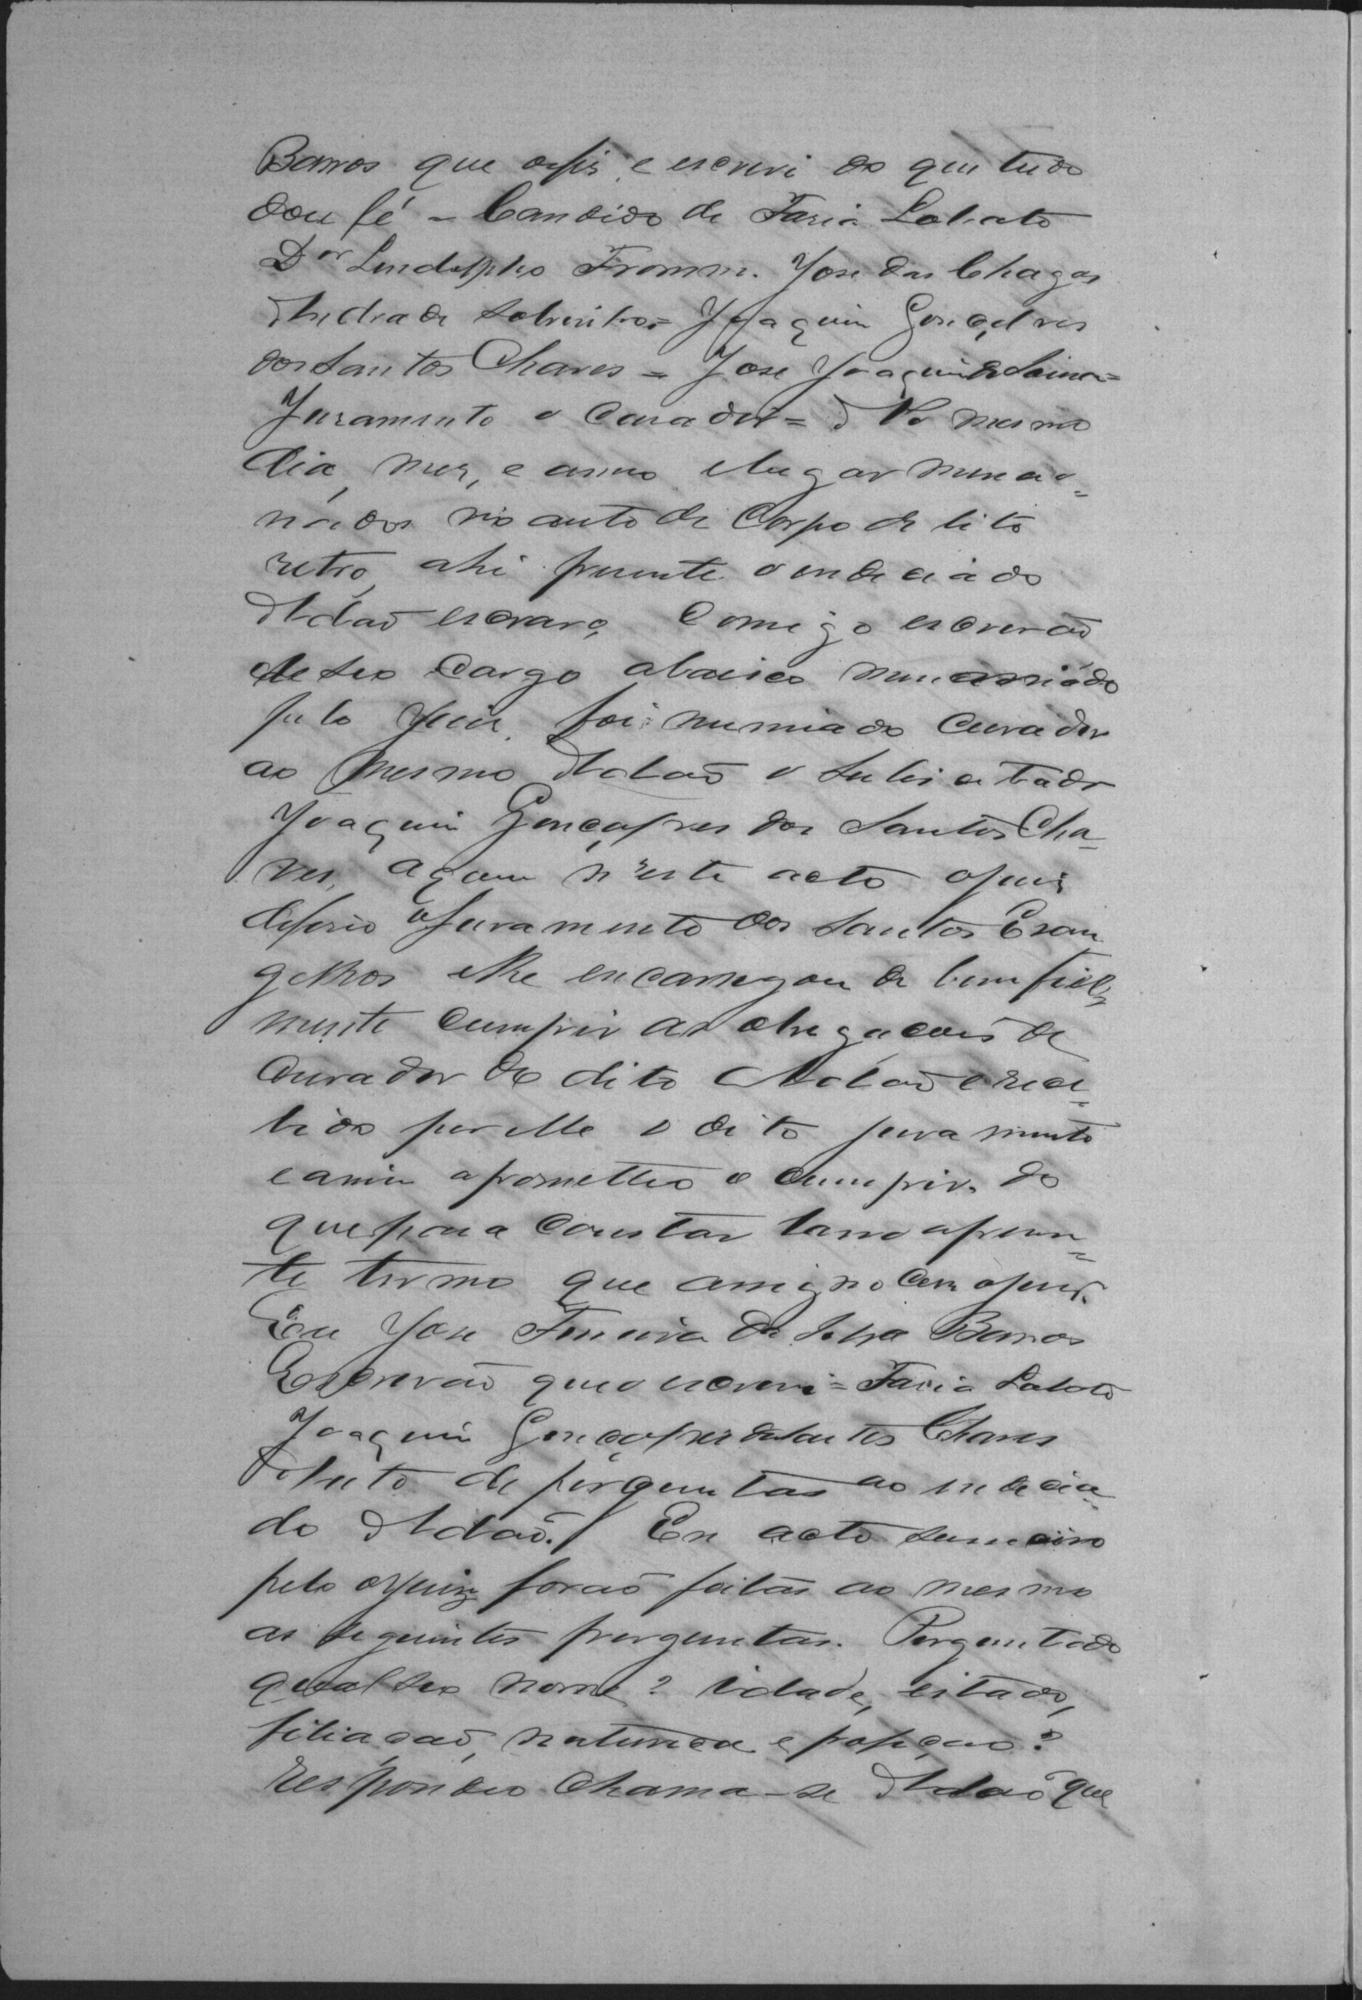 Barros que o fis, e escrevi do que tudo
dou fé – Candido de Faria Lobato
Dor Lindolpho Fromm. Jose das Chagas
Andrade Sobrinho = Joaquim Gonçalves
dos Santos Chaves = Jose Joaquim de Lima =
Juramento o Curador = No mesmo
dia, mez, e anno e lugar mencio=
nados no auto de Corpo de lito
retro, ahi presente o indiciado
Adaõ escravo, Comigo escrevaõ
de seo Cargo abaixo numiado
pelo Juiz, foi numiado Curador
ao mesmo Adaõ o Sulicitador
Joaquim Gonçalves dos Santos Cha=
ves, a quem n'este acto o juis
diferio o juramento dos Santos Evan
gelhos e lhe encarregou de bem fiel=
mente cumprir as obrigacois de
Curador do dito Adaõ e rece=
bido por elle o dito juramento
e acim a prometteo o cumprir. do
que para Constar lavro o prezen=
te termo que assigno Com o juis.
Eu Jose Ferreira da Silva Barros
Escrevaõ que o escrevi = Faria Lobato
Joaquim Gonçalves dos Santos Chaves
Auto de perguntas ao indicia
do Adaõ. / En acto sumciso
pelo o Juiz foraõ feitas ao mesmo
as seguintes perguntas. Perguntado
qual seo nome? idade, estado,
filiacaõ, natureza e
Respondeo Chama-se Adaõ que